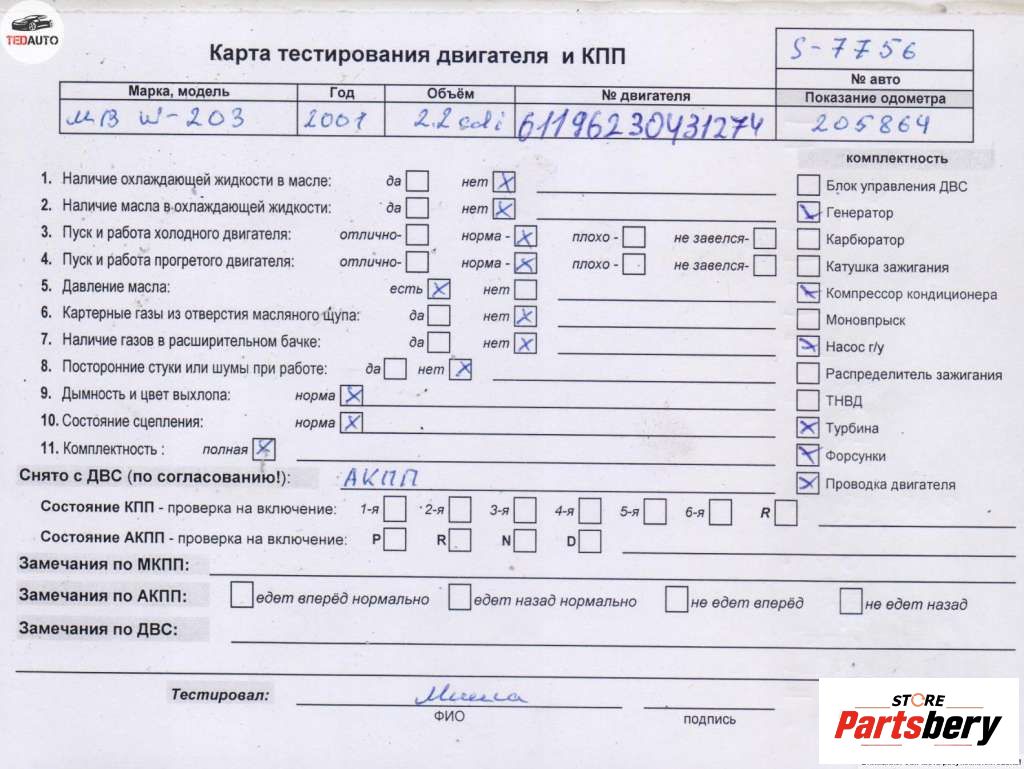 TEDAUTO
Карта тестирования двигателя и КПП
S-7756
№ авто
Марка, модель Год Объём № двигателя Показание одометра
МВ W-203 2001 2.2 cdi 61196230431274 205864
комплектность
1. Наличие охлаждающей жидкости в масле: да нет
Блок управления ДВС
2. Наличие масла в охлаждающей жидкости: да нет
Генератор
3. Пуск и работа холодного двигателя: отлично- норма - плохо - не завелся-
Карбюратор
4. Пуск и работа прогретого двигателя: отлично- норма - плохо - не завелся-
Катушка зажигания
5. Давление масла: есть нет
Компрессор кондиционера
6. Картерные газы из отверстия масляного щупа: да нет
Моновпрыск
7. Наличие газов в расширительном бачке: да нет
Насос г/у
8. Посторонние стуки или шумы при работе: да нет
Распределитель зажигания
9. Дымность и цвет выхлопа: норма
ТНВД
10. Состояние сцепления: норма
Турбина
11. Комплектность : полная
Форсунки
Снято с ДВС (по согласованию!): АКПП
Проводка двигателя
Состояние КПП - проверка на включение: 1-я 2-я 3-я 4-я 5-я 6-я R
Состояние АКПП - проверка на включение: P R N D
Замечания по МКПП:
Замечания по АКПП: едет вперёд нормально едет назад нормально не едет вперёд не едет назад
Замечания по ДВС:
Тестировал:
ФИО подпись
STORE
Partsbery